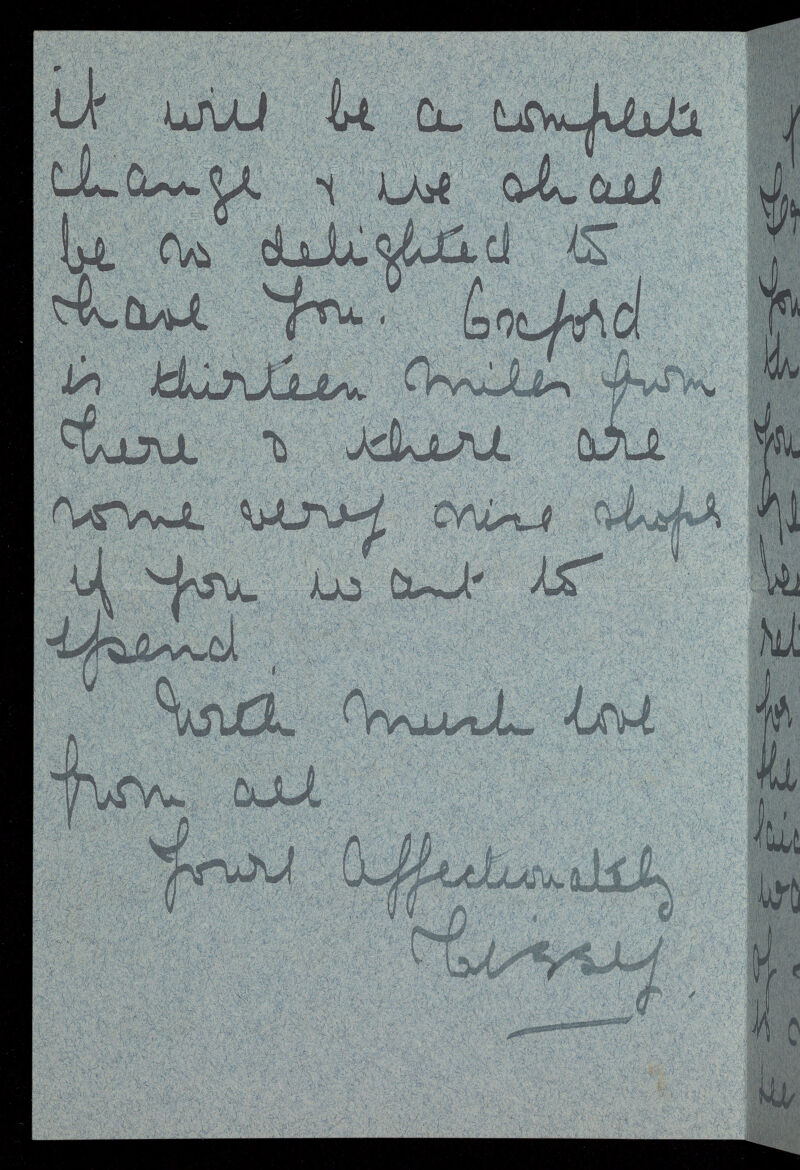 it will be a complete
change & we shall
be so delighted to
have you. Oxford
is thirteen miles from
here & there are
some very nice shops
if you want to
spend.
With much love
from all
Yours Affectionately